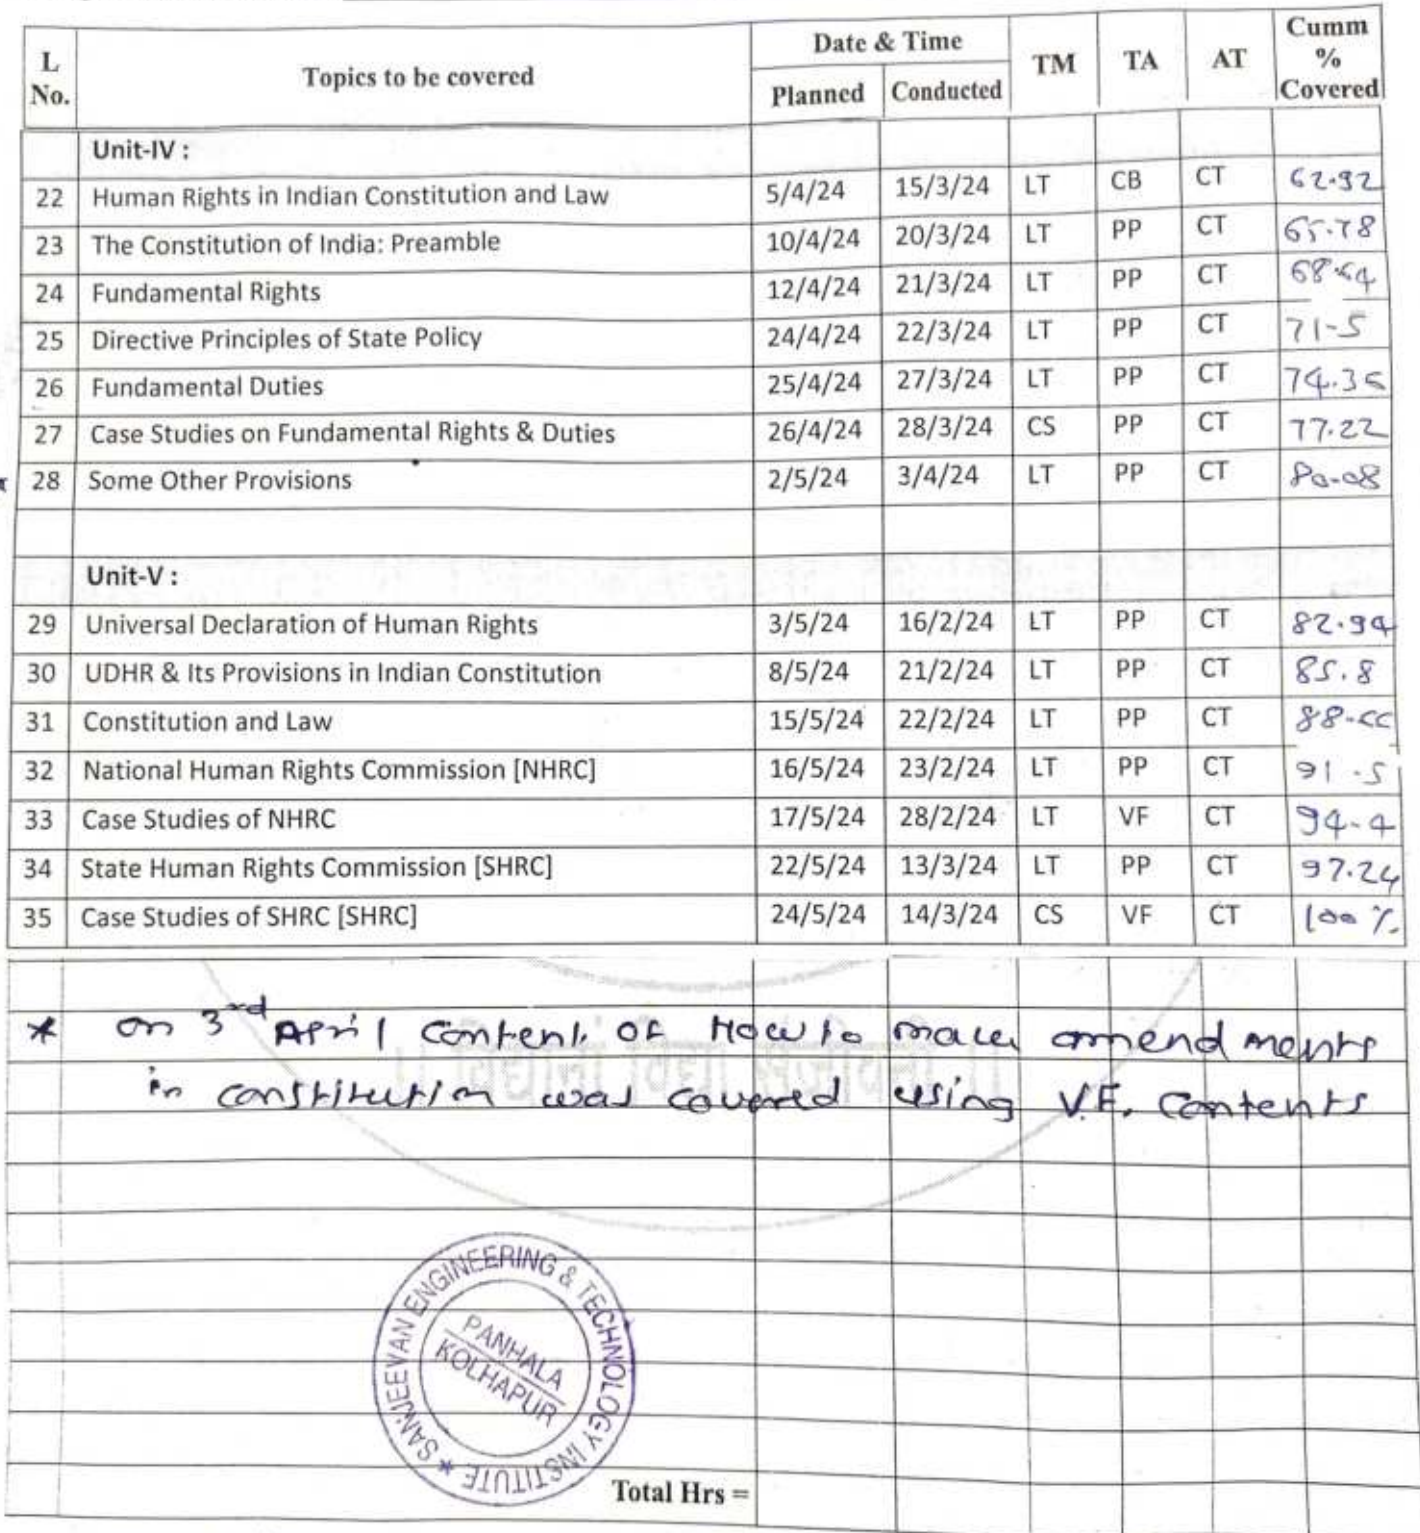 L No. Topics to be covered Date & Time TM TA AT Cumm % Covered
Planned Conducted
Unit-IV :
22 Human Rights in Indian Constitution and Law 5/4/24 15/3/24 LT CB CT 62.92
23 The Constitution of India: Preamble 10/4/24 20/3/24 LT PP CT 65.78
24 Fundamental Rights 12/4/24 21/3/24 LT PP CT 68.64
25 Directive Principles of State Policy 24/4/24 22/3/24 LT PP CT 71-5
26 Fundamental Duties 25/4/24 27/3/24 LT PP CT 74.36
27 Case Studies on Fundamental Rights & Duties 26/4/24 28/3/24 CS PP CT 77.22
* 28 Some Other Provisions 2/5/24 3/4/24 LT PP CT 80-08
Unit-V :
29 Universal Declaration of Human Rights 3/5/24 16/2/24 LT PP CT 82.94
30 UDHR & Its Provisions in Indian Constitution 8/5/24 21/2/24 LT PP CT 85.8
31 Constitution and Law 15/5/24 22/2/24 LT PP CT 88-66
32 National Human Rights Commission [NHRC] 16/5/24 23/2/24 LT PP CT 91.51
33 Case Studies of NHRC 17/5/24 28/2/24 LT VF CT 94-4
34 State Human Rights Commission [SHRC] 22/5/24 13/3/24 LT PP CT 97.24
35 Case Studies of SHRC [SHRC] 24/5/24 14/3/24 CS VF CT 100 %
* on 3rd April content of How to make amendments
in constitution was covered using V.F. Contents
SANJEEVAN ENGINEERING & TECHNOLOGY INSTITUTE *
PANHALA
KOLHAPUR
Total Hrs =